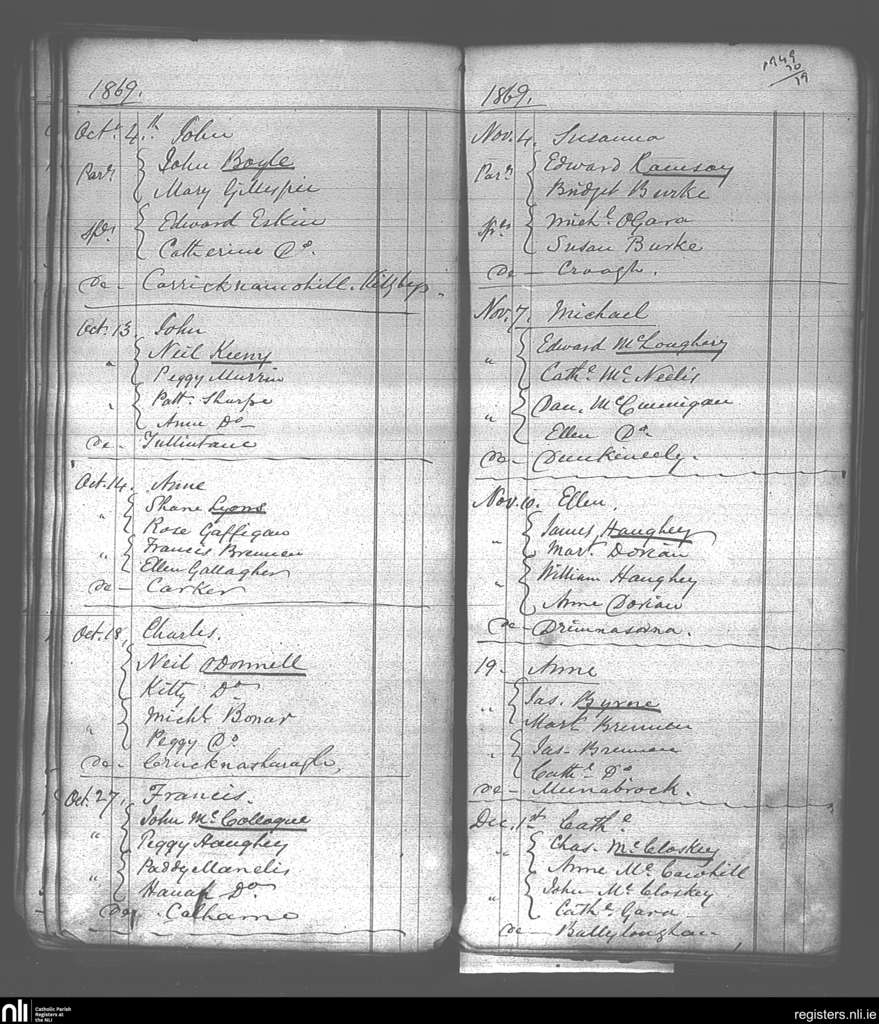 1869.
Oct. 4.th John
Par.s John Boyle
Mary Gillespie
Sps. Edward Eskin
Catherine Do.
de - Carricknamohill.
Oct. 13. John
" Neil Keeny
Peggy Murrin
" Patt. Sharpe
Anne Do -
de - Tullintane
Oct. 14. Anne
" Shane Lyons
Rose Gaffigan
" Francis Brennen
Ellen Gallagher
de - Carker
Oct. 18, Charles.
Neil O'Donnell
Kitty Do
" Michl. Bonar
Peggy Do.
de - Crucknasharagh,
Oct. 27, Francis.
" John McCollogue
Peggy Haughey
" Paddy Manelis
Hanah Do
de Calhame
1869.
Nov. 4. Susanna
Par.s Edward Ramsay
Bridget Burke
Sps. Michl. OGara
Susan Burke
de - Croagh.
Nov. 7. Michael
" Edward McLoughery
Cathe. McNeelis
" Dan. McCunnigan
Ellen Do.
de - Dunkineely.
Nov. 10. Ellen.
" James Haughey
Mart. Dorian
" William Haughey
Anne Dorian
de - Drimnasorna.
19 - Anne
" Jas. Byrne
Mart. Brennen
" Jas - Brennen
Cathe. Do
de - Munabrock.
Dec. 1st Cathe
" Chas. McCloskey
Anne McCawhill
" John McCloskey
Cathe. Gara
de - Ballyloughan
nli Catholic Parish
Registers at
the NLI
registers.nli.ie